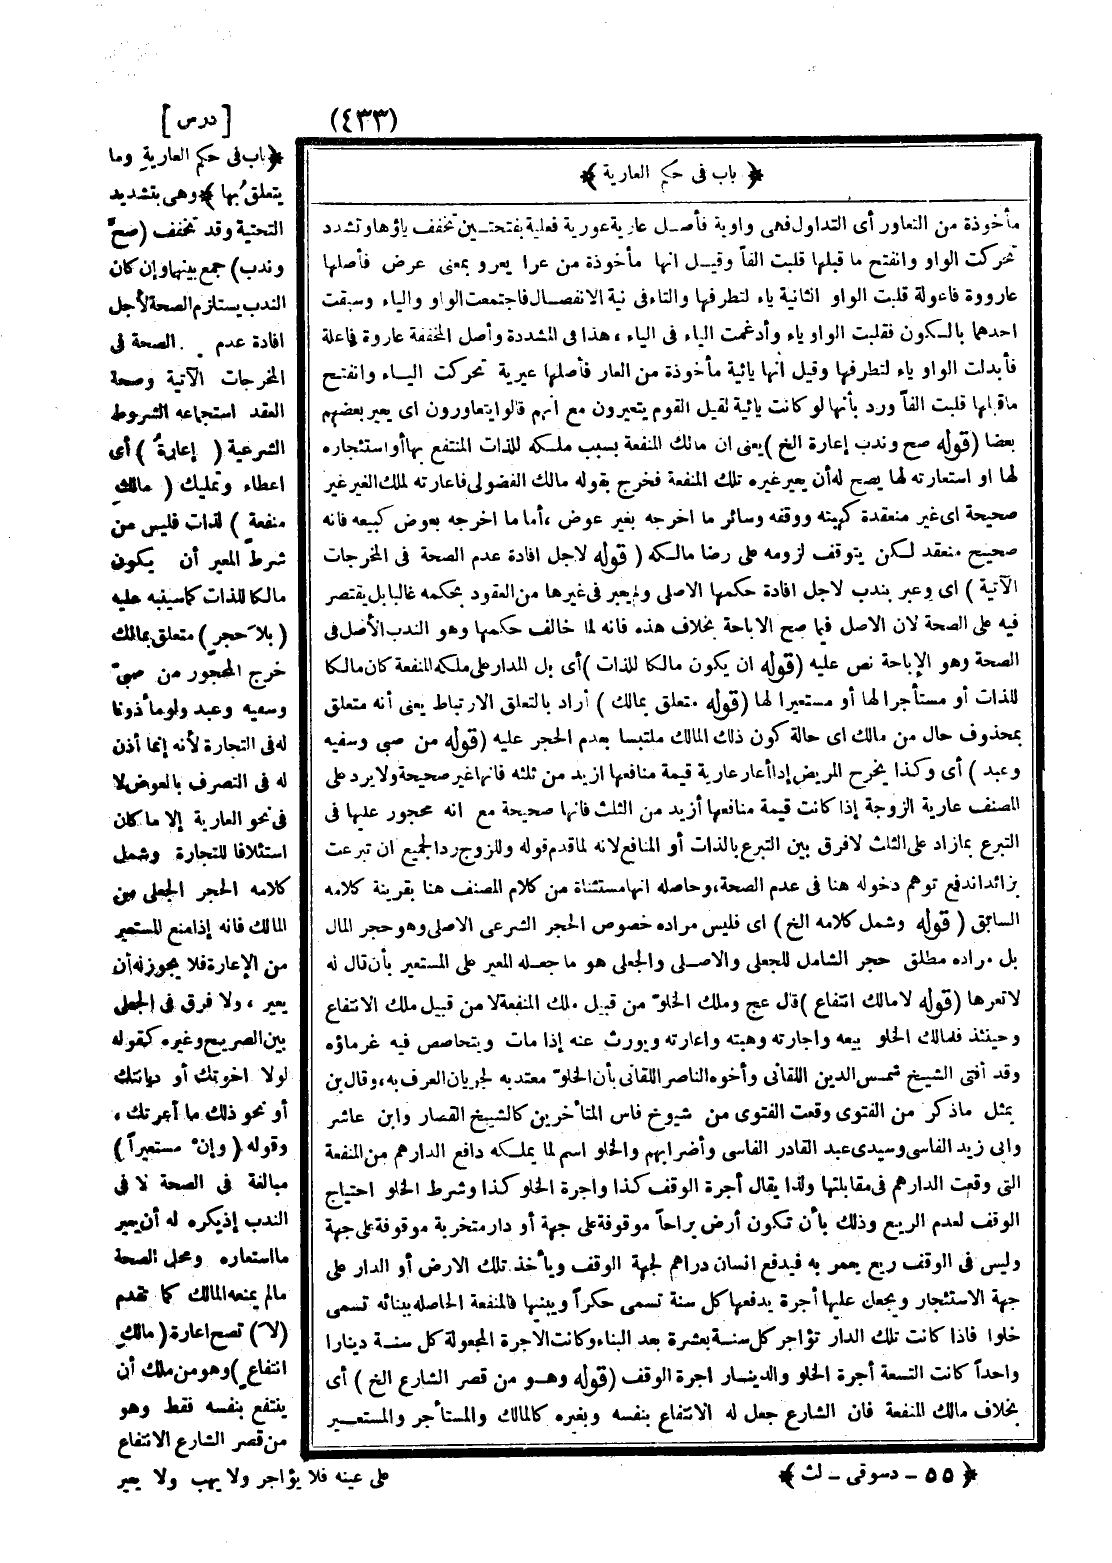 (٤٣٣)
[ درس ]
﴿ باب فى حكم العارية ﴾
مأخوذة من التعاور أى التداول فهى واوية فأصل عارية عورية فعلية بفتحتين تخفف ياؤها وتشدد
تحركت الواو وانفتح ما قبلها قلبت الفاً وقيل انها مأخوذة من عرا يعرو بمعنى عرض فأصلها
عارووة فاعولة قلبت الواو الثانية ياء لتطرفها والتاء فى نية الانفصال فاجتمعت الواو والياء وسبقت
احدهما بالسكون فقلبت الواو ياء وأدغمت الياء فى الياء ، هذا فى المشددة وأصل المخففة عاروة فاعلة
فأبدلت الواو ياء لتطرفها وقيل أنها يائية مأخوذة من العار فأصلها عيرية تحركت الياء وانفتح
ماقبلها قلبت الفاً ورد بأنها لو كانت يائية لقيل القوم يتعيرون مع انهم قالوا يتعاورون اى يعير بعضهم
بعضا (قوله صح وندب إعارة الخ) يعنى ان مالك المنفعة بسبب ملكه للذات المنتفع بها أو استئجاره
لها او استعارته لها يصح له أن يعير غيره تلك المنفعة فخرج بقوله مالك الفضولى فاعارته لملك الغير غير
صحيحة اى غير منعقدة كهبته ووقفه وسائر ما اخرجه بغير عوض ، أما ما اخرجه بعوض كبيعه فانه
صحيح منعقد لكن يتوقف لزومه على رضا مالكه ( قوله لاجل افادة عدم الصحة فى المخرجات
الآتية ) اى وعبر بندب لاجل افادة حكمها الاصلى ولم يعبر فى غيرها من العقود بحكمه غالبا بل يقتصر
فيه على الصحة لان الاصل فيما صح الاباحة بخلاف هذه فانه لما خالف حكمها وهو الندب الأصل فى
الصحة وهو الإباحة نص عليه (قوله ان يكون مالكا للذات ) أى بل المدار على ملكه المنفعة كان مالكا
للذات أو مستأجرا لها أو مستعيرا لها (قوله متعلق بمالك ) أراد بالتعلق الارتباط يعنى أنه متعلق
بمحذوف حال من مالك اى حالة كون ذلك المالك ملتبسا بعدم الحجر عليه (قوله من صبى وسفيه
وعبد ) أى وكذا يخرج المريض إذا أعار عارية قيمة منافعها ازيد من ثلثه فانها غير صحيحة ولا يرد على
المصنف عارية الزوجة إذا كانت قيمة منافعها أزيد من الثلث فانها صحيحة مع انه محجور عليها فى
التبرع بمازاد على الثلث لافرق بين التبرع بالذات أو المنافع لانه لما قدم قوله وللزوج رد الجميع ان تبرعت
بزائد اندفع توهم دخوله هنا فى عدم الصحة ، وحاصله انها مستثناة من كلام المصنف هنا بقرينة كلامه
السابق ( قوله وشمل كلامه الخ ) اى فليس مراده خصوص الحجر الشرعى الاصلى وهو حجر المال
بل مراده مطلق حجر الشامل للجعلى والاصلى والجعلى هو ما جعله المعير على المستعير بأن قال له
لاتعرها (قوله لا مالك انتفاع ) قال عج وملك الخلو من قبيل ملك المنفعة لا من قبيل ملك الانتفاع
وحينئذ فلمالك الخلو بيعه واجارته وهبته واعارته ويورث عنه إذا مات ويتحاصص فيه غرماؤه
وقد أفتى الشيخ شمس الدين اللقانى وأخوه الناصر اللقانى بأن الخلو معتد به لجريان العرف به ، وقال بن
بمثل ماذكر من الفتوى وقعت الفتوى من شيوخ فاس المتأخرين كالشيخ القصار وابن عاشر
وابى زيد الفاسى وسيدى عبد القادر الفاسى وأضرابهم والخلو اسم لما يملكه دافع الدارهم من المنفعة
التى وقعت الدارهم فى مقابلتها ولذا يقال أجرة الوقف كذا واجرة الخلو كذا وشرط الخلو احتياج
الوقف لعدم الريع وذلك بأن تكون أرض براحاً موقوفة على جهة أو دار متخربة موقوفة على جهة
وليس فى الوقف ريع يعمر به فيدفع انسان دراهم لجهة الوقف ويأخذ تلك الارض أو الدار على
جهة الاستئجار ويجعل عليها أجرة يدفعها كل سنة تسمى حكراً ويبنيها فالمنفعة الحاصله ببنائه تسمى
خلوا فاذا كانت تلك الدار تؤاجر كل سنة بعشرة بعد البناء وكانت الاجرة المجعولة كل سنة دينارا
واحداً كانت التسعة أجرة الخلو والدينار اجرة الوقف (قوله وهو من قصر الشارع الخ ) أى
بخلاف مالك المنفعة فان الشارع جعل له الانتفاع بنفسه وبغيره كالمالك والمستأجر والمستعير
﴿ باب فى حكم العارية وما
يتعلق بها ﴾ وهى بتشديد
التحتية وقد تخفف (صحَّ
وندب) جمع بينهما وإن كان
الندب يستلزم الصحة لأجل
افادة عدم الصحة فى
المخرجات الآتية وصحة
العقد استجماعه الشروط
الشرعية ( إعارةُ ) أى
اعطاء وتمليك ( مالكِ
منفعةٍ ) لذات فليس من
شرط المعير أن يكون
مالكا للذات كما سينبه عليه
( بلا حجرٍ ) متعلق بمالك
خرج المحجور من صبىّ
وسفيه وعبد ولو مأذونا
له فى التجارة لأنه إنما أذن
له فى التصرف بالعوض لا
فى نحو العارية إلا ما كان
استئلافا للتجارة وشمل
كلامه الحجر الجعلى من
المالك فانه إذا منع المستعير
من الإعارة فلا يجوز له أن
يعير ، ولا فرق فى الجعلى
بين الصريح وغيره كقوله
لولا اخوتك أو ديانتك
أو نحو ذلك ما أعرتك ،
وقوله ( وإنْ مستعيراً )
مبالغة فى الصحة لا فى
الندب إذ يكره له أن يعير
ما استعاره ومحل الصحة
مالم يمنعه المالك كما تقدم
(لا) تصح اعارة ( مالكِ
انتفاعٍ ) وهو من ملك أن
ينتفع بنفسه فقط وهو
من قصر الشارع الانتفاع
على عينه فلا يؤاجر ولا يهب ولا يعير
﴿ ٥٥ - دسوقى - لث ﴾